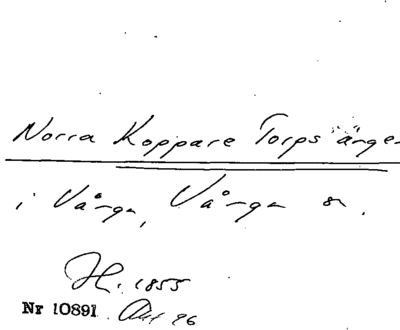 Norra Koppare Torps ängen
i Vånga, Vånga sn.
H. 1855
Nr 10891 Akt 96